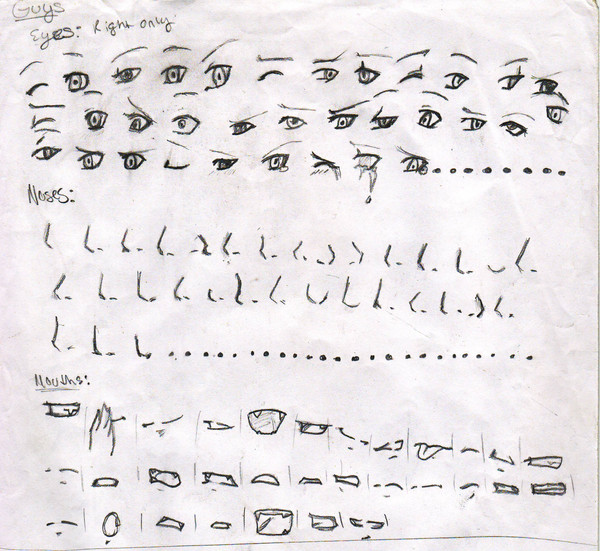 Guys
Eyes: Right only
Noses:
Mouths: